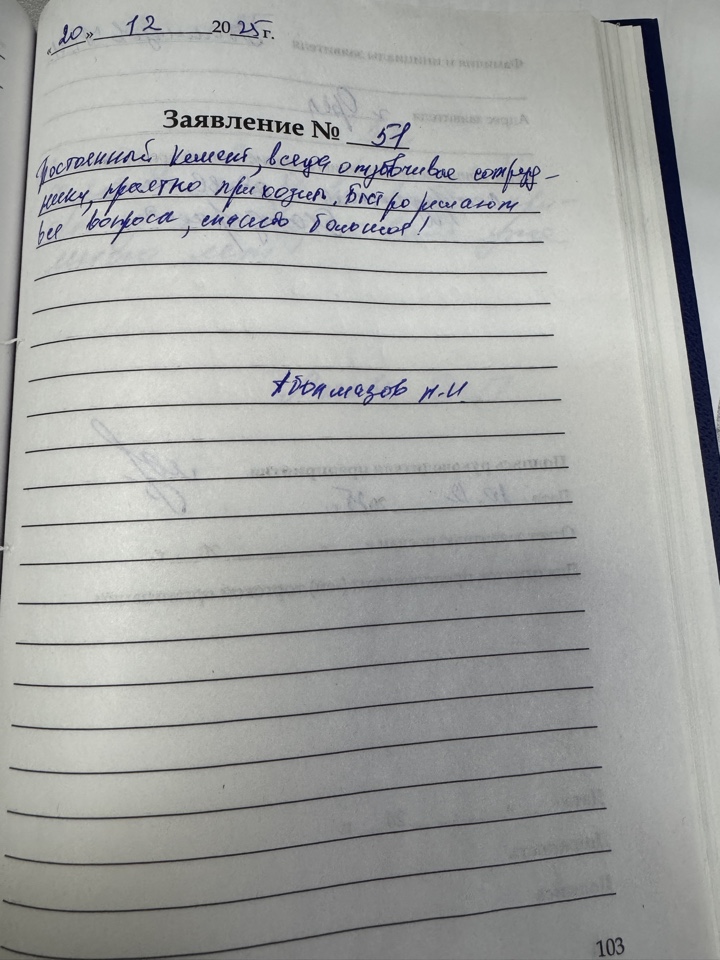 «20» 12 2025 г.
Заявление № 51
Постоянный клиент, всегда отзывчивые сотруд-
ники, приятно приходить. Быстро решают
все вопросы, спасибо большое!
Н.И
103